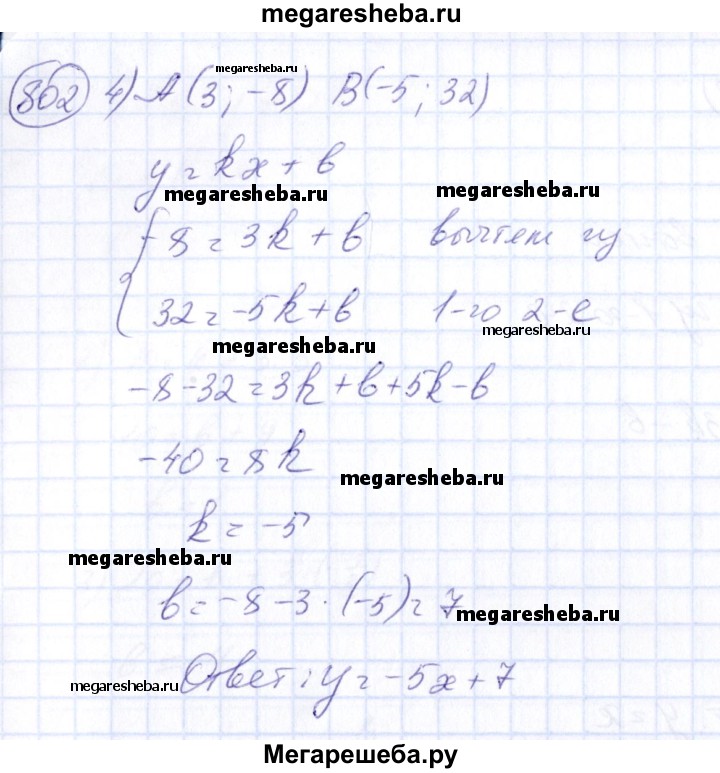 megaresheba.ru
megaresheba.ru
802 4) A (3; -8) B(-5; 32)
y = kx + b
megaresheba.ru megaresheba.ru
-8 = 3k + b вычтем из
32 = -5k + b 1-го 2-е
megaresheba.ru
megaresheba.ru
-8-32 = 3k + b + 5k - b
-40 = 8k
megaresheba.ru
k = -5
megaresheba.ru
b = -8 - 3 · (-5) = 7
megaresheba.ru
Ответ: y = -5x + 7
megaresheba.ru
Мегарешеба.ру